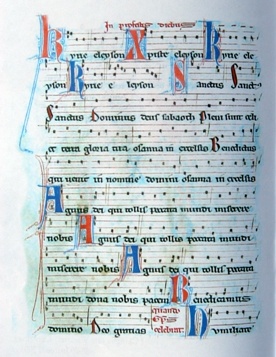 In profestis diebus
Kyrie eleyson Xpiste eleyson Kyrie ele
yson Kyrie e leyson Sanctus Sanct
Sanctus Dominus deus sabaoth Pleni sunt celi
et terra gloria tua osanna in excelsis Benedictus
qui uenit in nomine domini osanna in excelsis
Agnus dei qui tollis peccata mundi miserere
nobis Agnus dei qui tollis peccata mundi
miserere nobis Agnus dei qui tollis peccata
mundi dona nobis pacem Benedicamus
quando
celebrat
domino Deo gratias Humiliate